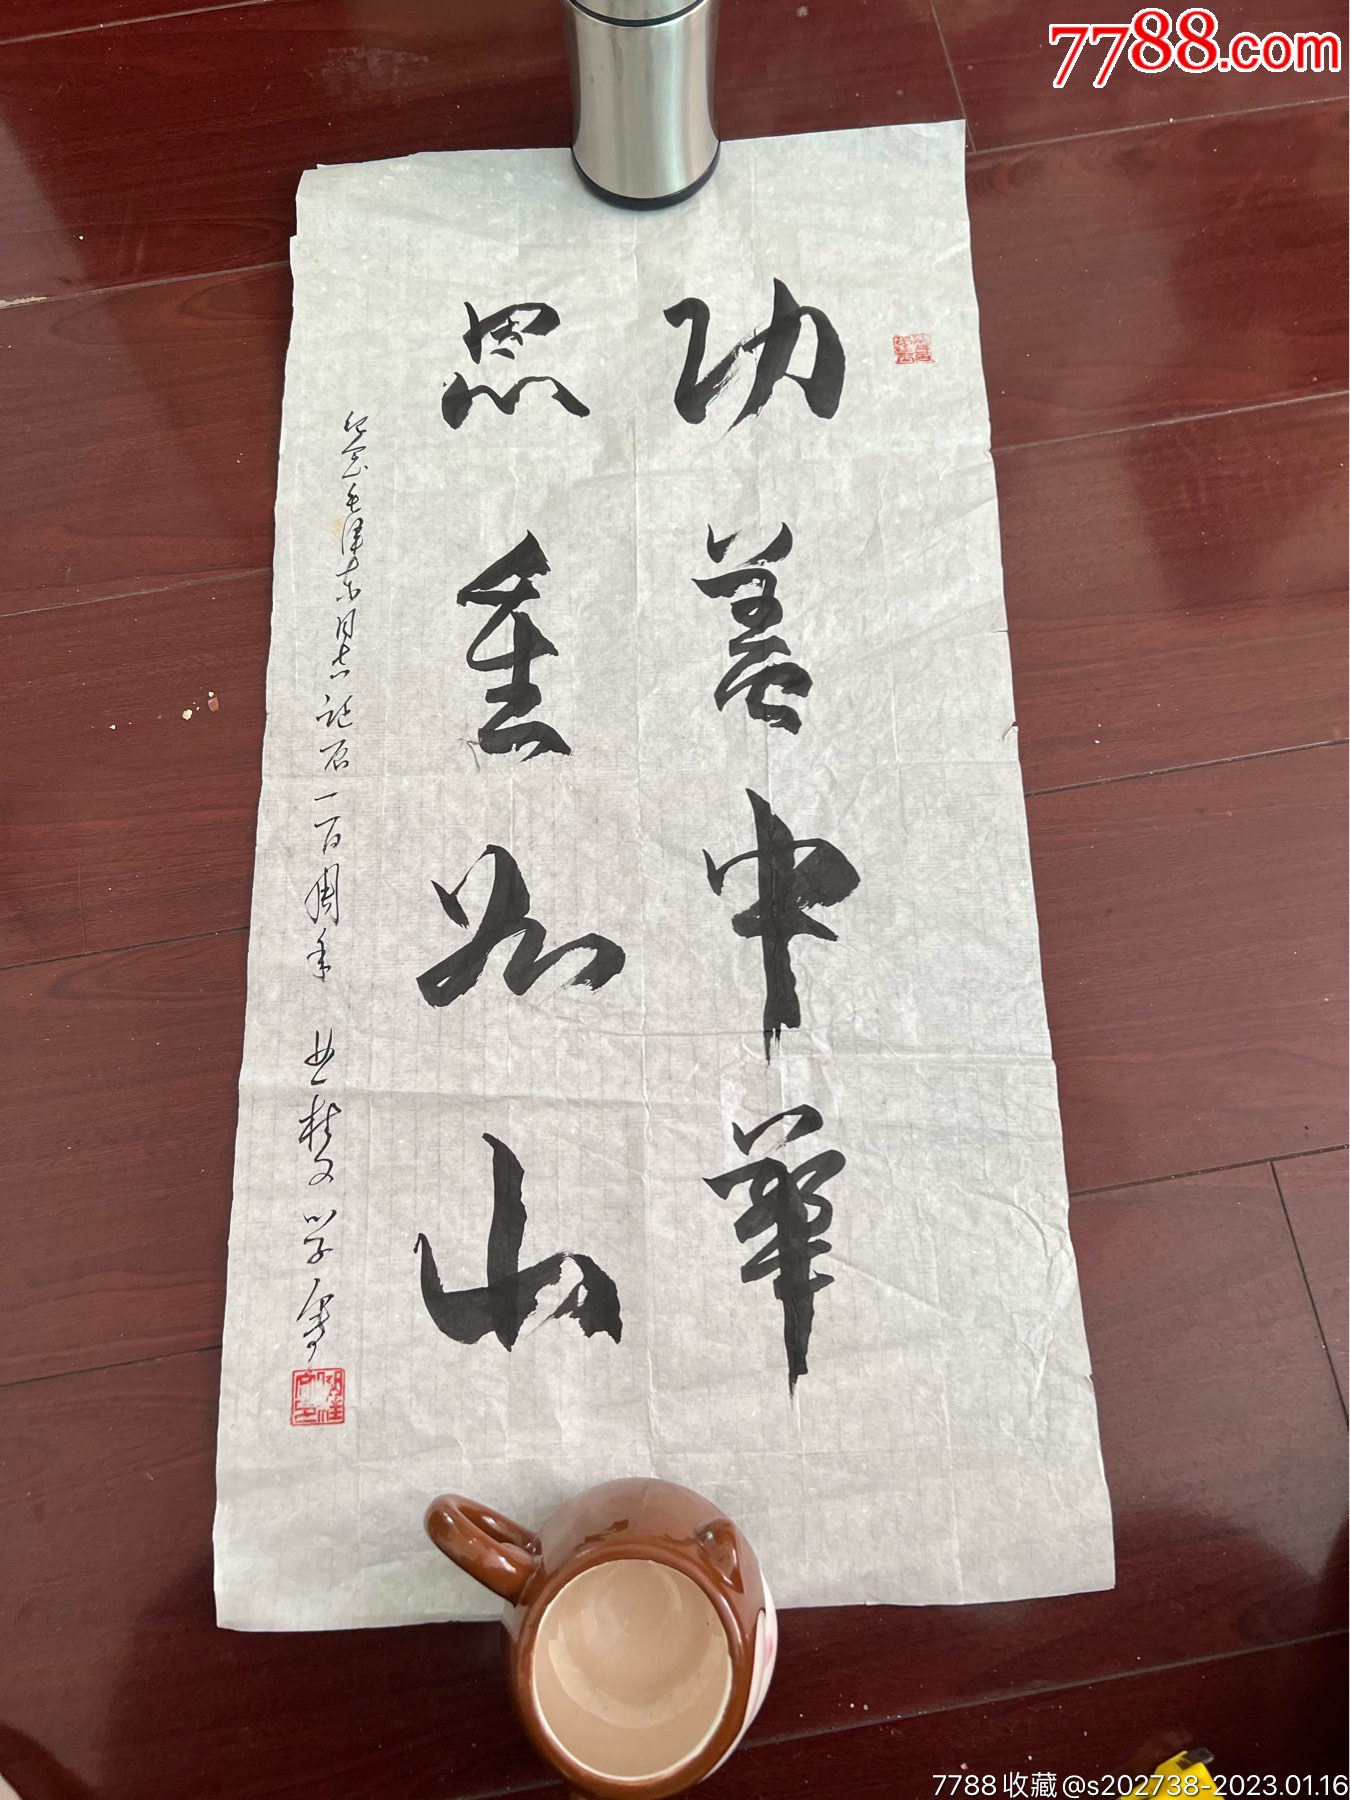 7788.com
功盖中华
恩重如山
纪念毛泽东同志诞辰一百周年
学书
7788收藏@s202738-2023.01.16